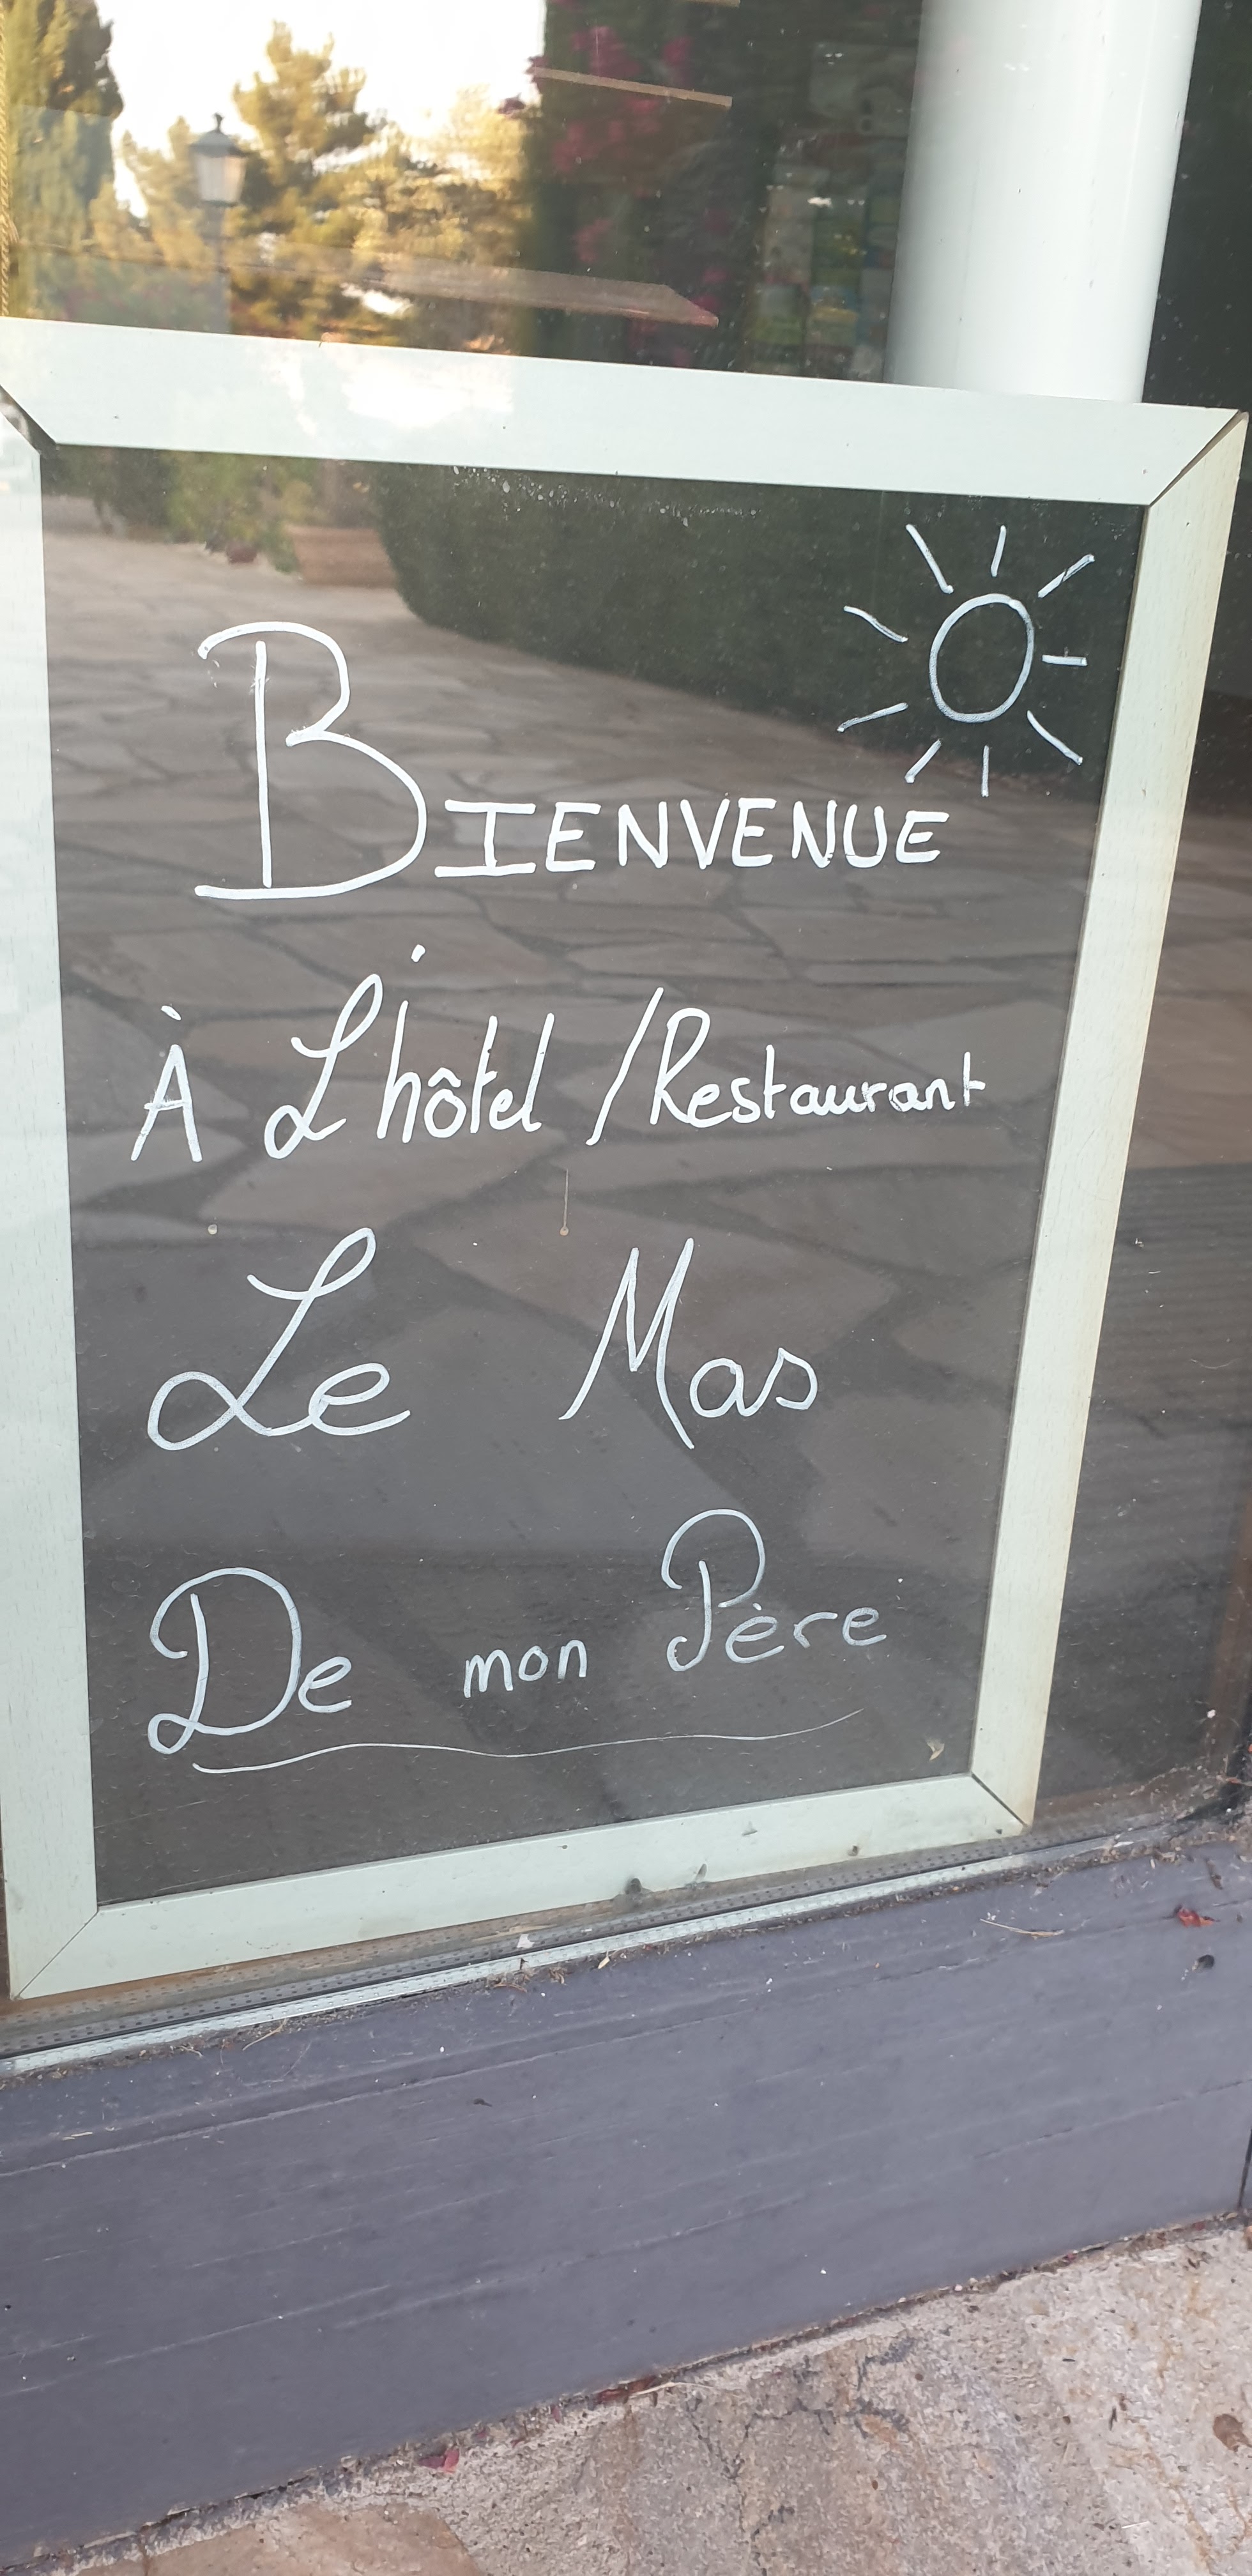 BIENVENUE
À L'hôtel / Restaurant
Le Mas
De mon Père